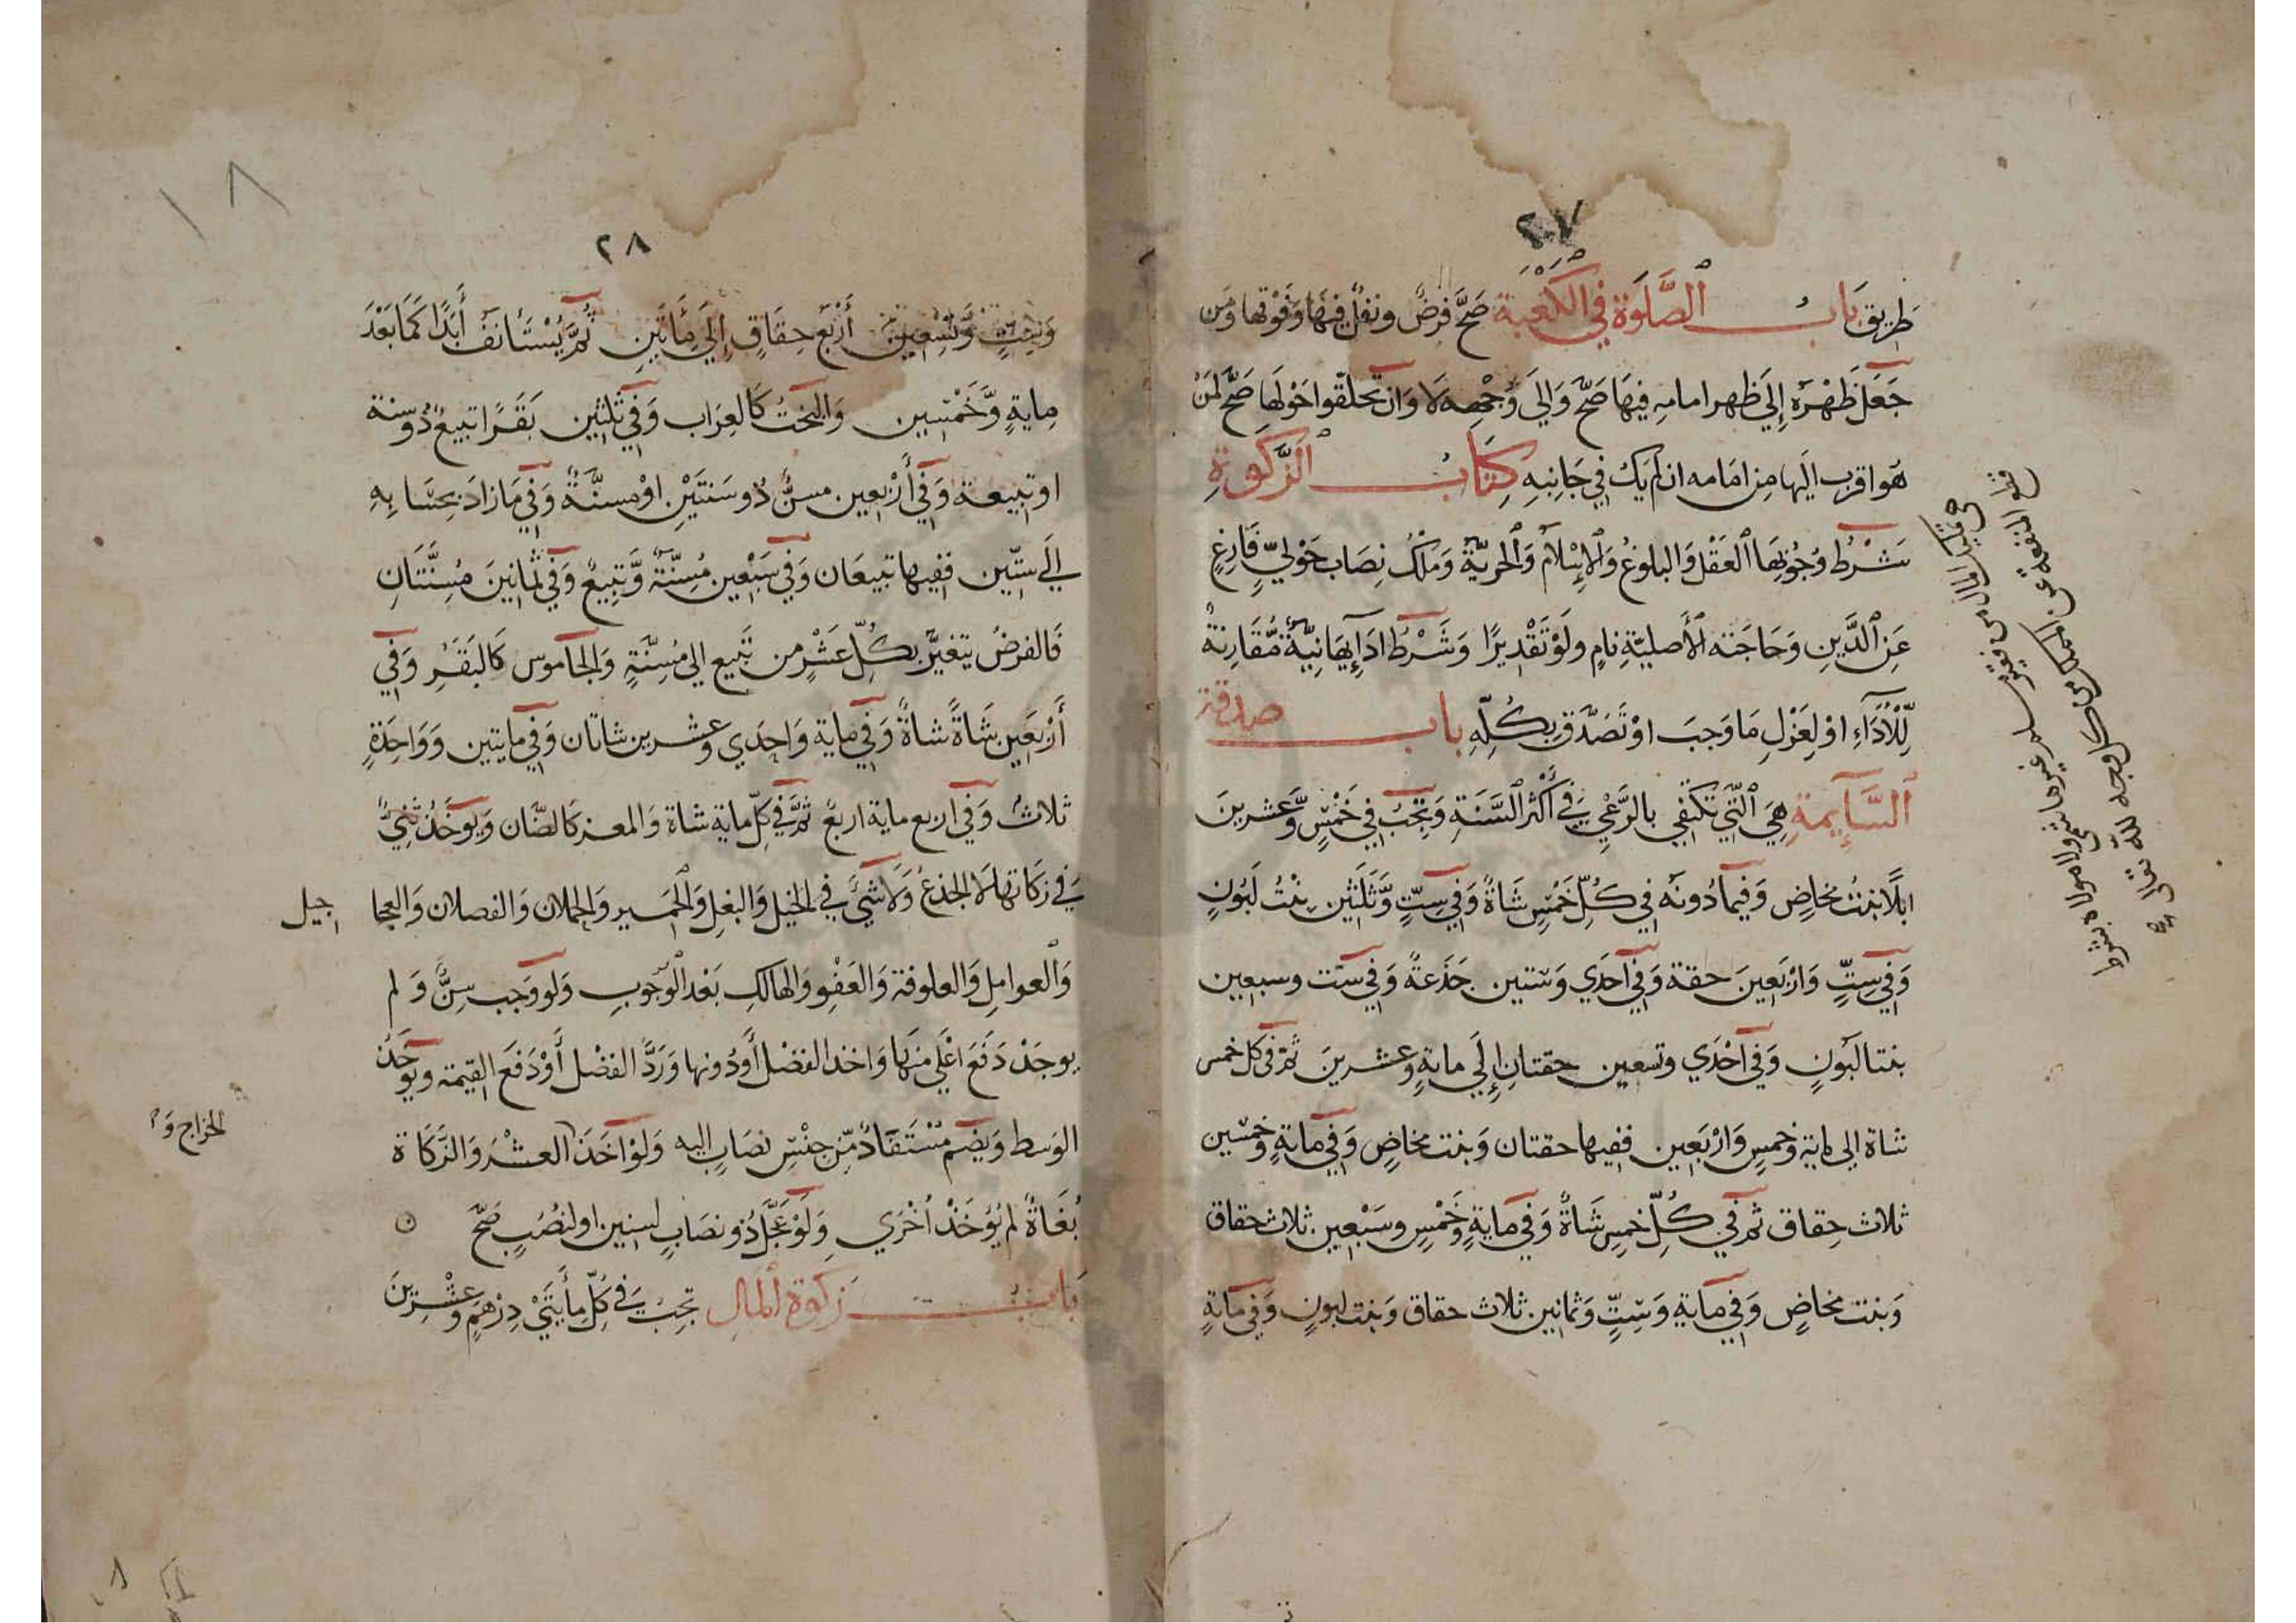 ٢٠٧
طريق باب الصَّلوة في الكعبة صَحَّ فرضٌ ونفلٌ فيها وَفَوْقها وَمَن
جَعَلَ ظَهْرَهُ إِلَى ظهر امامهِ فِيهَا صَحَّ وَاِلَى وَجْهِهِ لَا وَاِن تحلّقوا حَوْلَهَا صَحَّ لمَنْ
هُوَ اقرب اليها مِن امَامه ان لم يَكُ في جَانِبهِ كِتَابُ الزَّكوةِ
شَرْطُ وُجُوبِهَا العَقْلُ وَالبلوغُ وَالإِسْلَامُ وَالحريّةُ وَمِلْكُ نِصَاب حَوْليٍّ فَارِغٍ
عَنِ الدَّينِ وَحَاجَته الأَصليّةِ نامٍ ولَوْ تَقْدِيرًا وَشَرْطُ ادَائِهَا نِيَّةٌ مُّقَارِنةٌ
لِّلأَدَآءِ اوْ لِعَزْلِ مَا وَجبَ اوْ تَصَدَّقَ بِكُلِّهِ باب صدقة
السَّايِمةِ هِيَ الَّتِي تَكْتَفِي بالرَّعْيِ فِي أَكْثر السَّنَةِ وَتجِبُ في خَمْسٍ وَّعشرينَ
ابلًا بنتُ مخاضٍ وَفِيمَا دُونَه في كُلِّ خَمْسٍ شَاةٌ وَفي سِتٍّ وَّثَلَثِين بِنْتُ لَبُونٍ
وَفي سِتٍّ وَارْبَعِينَ حقة وَفي احَدَي وَستين جَذَعةٌ وَفي سِت وسبعين
بنتا لبُونٍ وَفي احْدَي وتسعين حقتانِ إِلَي مايةٍ وعشرينَ ثمّ في كل خمس
شاة الى ماية وخمسٍ وَارْبَعِين ففيها حقتان وَبنت مخاضٍ وَفي مايةٍ وخمسين
ثلاث حِقاق ثم في كُلِّ خمسٍ شَاةٌ وَفي مايةٍ وخَمْسٍ وسَبْعِين ثلاث حقاق
وَبنت مخاضٍ وَفي مايةٍ وَسِتٍّ وَثمانين ثلاث حقاق وَبنت لبونٍ وَفي مايةٍ
١٨
٢٨
وَسِتٍّ وَّتِسْعِينَ أَرْبَع حِقَاقٍ إِلَى مِأَتَينِ ثُمَّ يُسْتَانَفُ أَبَدًا كَمَا بَعْدَ
مايةٍ وَّخَمْسِين وَالبُخْتُ كَالعِرَاب وَفي ثَلثِين بَقَرًا تبيعٌ ذُو سنة
او تَبِيعة وَفي أَرْبعِين مسنٌّ ذُو سَنتَيْنِ اوْ مُسنَّةٌ وَفي مَا زادَ بِحِسَابِهِ
الَى ستّين ففيها تبيعَان وَفي سَبْعِين مُسِنَّةٌ وَّتَبِيعٌ وَفي ثمانِينَ مُسِنَّتَانِ
فَالفرضُ يتغيَّر بكُلِّ عَشْرٍ من تَبيع الى مُسِنَّةٍ وَالجاموس كَالبَقَرِ وَفي
أَرْبَعِين شَاةً شاةٌ وَفي ماية وَاحِدي وعشرين شاتان وَفي مايتين وَوَاحِدَةٍ
ثلاثُ وَفي اربع ماية اربعُ ثمَّ في كلّ ماية شاة وَالمعز كالضّان وَيوخَذُ ثَنِيٌّ
في زكاتها لَا الجذعُ وَلا شيَ في الخيل وَالبغلِ وَالحمير وَالحملان وَالفصلان وَالعجا
جيل
وَالعوامل وَالعلوفة وَالعَفْوِ وَالهالكِ بَعْد الوُجوبِ وَلو وَجب سِنٌّ وَلم
يوجَدْ دَفَعَ اعْلَي منهَا وَاخذ الفضْل أَوْ دُونها وَرَدَّ الفضْل أَوْ دَفَع القيمة ويوخَذُ
الوَسط وَيضم مُسْتَفَادٌ مِّن جنْسِ نصَابٍ اليه وَلوْ اخَذَ العشْر وَالزَّكَاة
الخراج وَ
بُغَاةٌ لم يُؤخَذْ أُخْرَي وَلَوْ عَجَّلَ ذُو نصَابٍ لسنين او لنُصُبٍ صَحَّ
بَابُ زَكوة المَالِ تجِبُ في كُلِّ مأَيتَيْ دِرْهَمٍ وعِشْرينَ